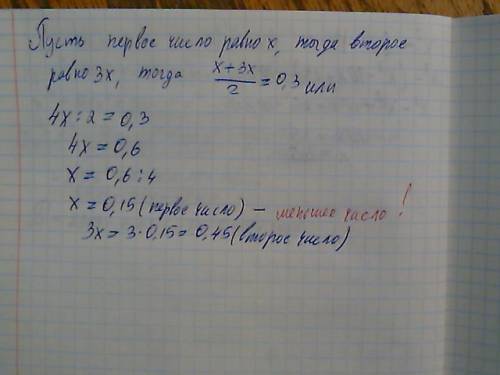 Пусть первое число равно x, тогда второе
равно 3x, тогда (x+3x)/2 = 0,3 или
4x:2=0,3
4x=0,6
x=0,6:4
x=0,15 (первое число) – меньшее число!
3x=3·0,15=0,45 (второе число)